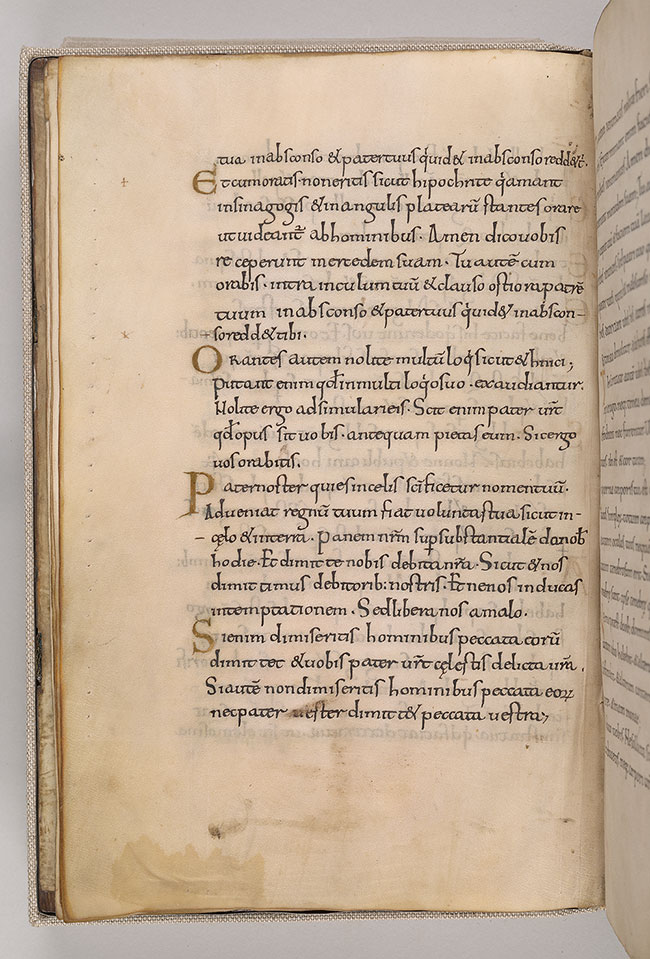 tua inabsconso & patertuus q'uid& inabsconso redd&t'.
Etcumoratis noneritis sicut hipochrite q'amant
insinagogis & inangulis platearū stantes orare
utuideant abhominibus. Amen dicouobis
re ceperunt mercedem suam. Tu autē cum
orabis. intra inculumtuū & clauso ostio rapatrē
tuum inabsconso & patertuus q'uid& inabscon-
soredd& tibi.
Orantes autem nolite multū loq'sicut & hnici;
putant enim qd' inmulti loq'osuo. exaudiantur.
Nolite ergo adsimularieis. Scit enim pater ur̄t
qd'opus sit uobis. antequam pietaseum. Sicergo
uos orabitis.
Paternoster quies incelis scīficetur nomentuū.
Adueniat regnū tuum fiat uoluntastua sicut in-
-cęlo & interra. Panem nr̄m supsubstantialē danob'
hodie. Et dimit te nobis debitanr̄a. Sicut & nos
dimit timus debitorib: nostris. Et nenos inducas
intemptationem. Sedlibera nos amalo.
Sienim dimiseritis hominibus peccata eorū
dimit tet & uobis pater ur̄t cęlestis delicta ur̄a.
Siautē nondimiseritis hominibus peccata eoꝝ
necpater uester dimit t& peccata uestra;